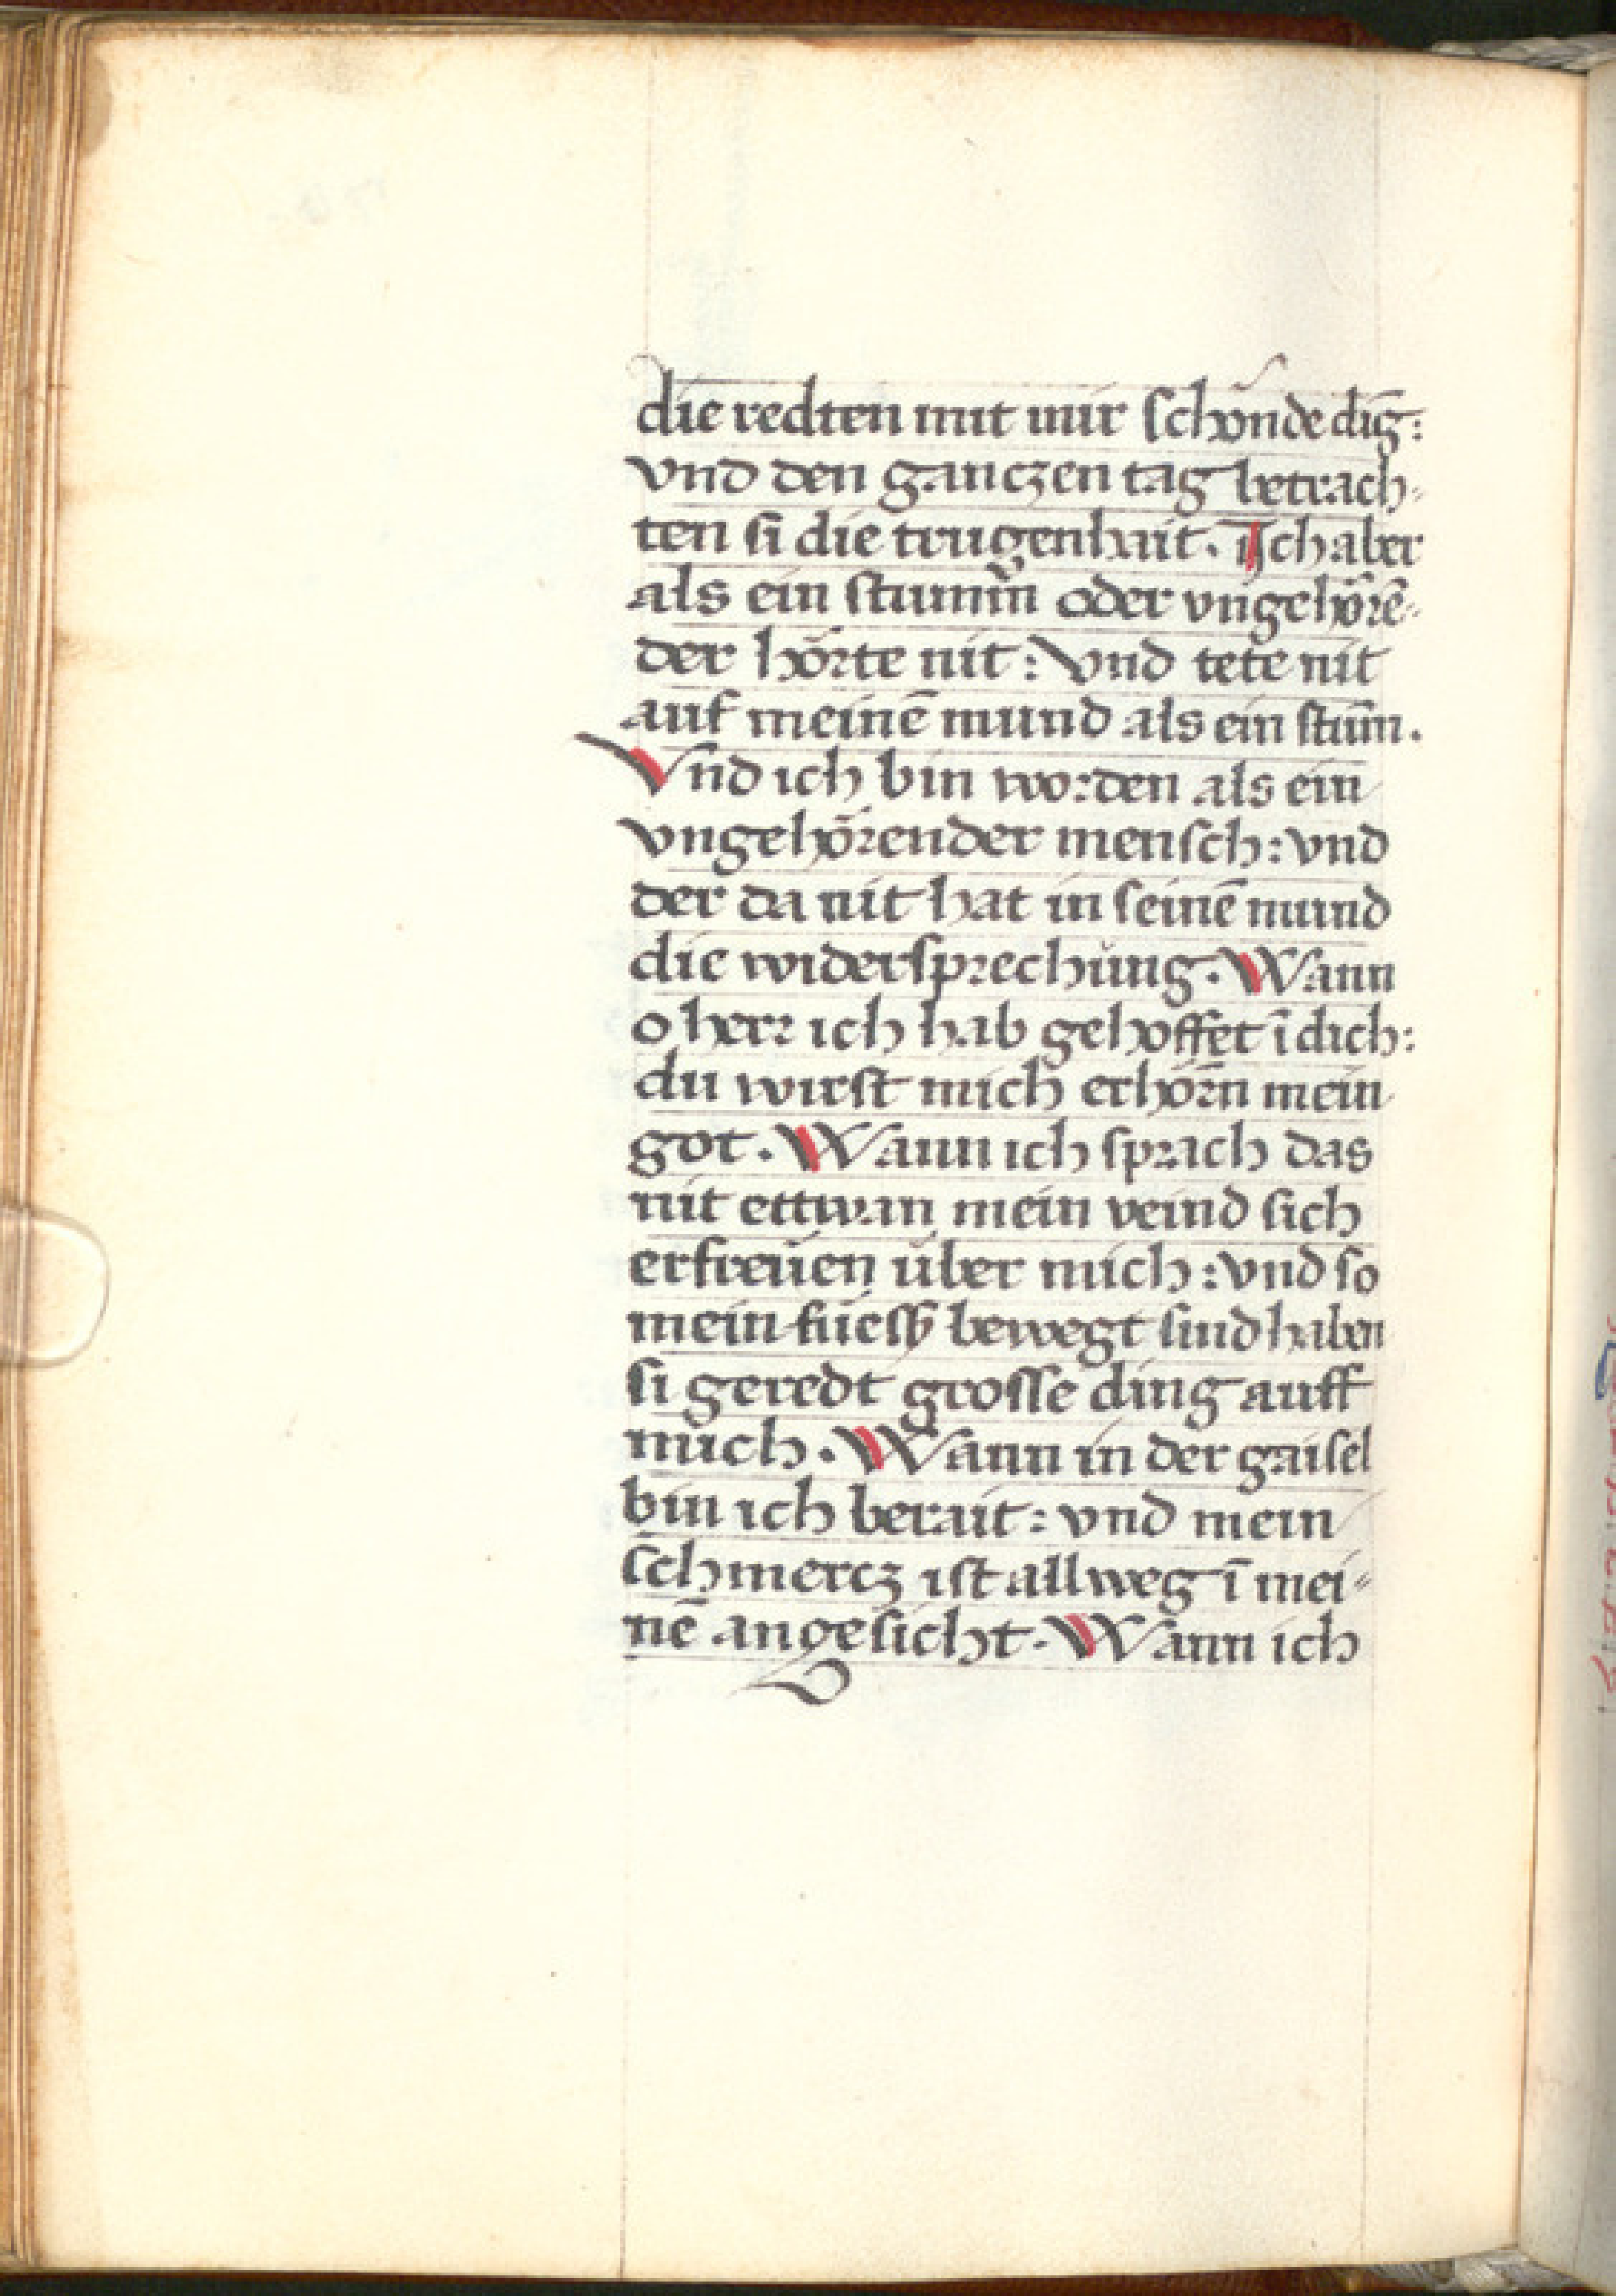 die redten mit mir schönde dīg:
vnd den ganczen tag betrach-
ten si die trugenhait. Ich aber
als ein stumm̄ oder vngehörē-
der hörte nit: vnd tete nit
auf meinē mund als ein stūm.
Vnd ich bin worden als ein
vngehörender mensch: vnd
der da nit hat in seinē mund
die widersprechŭng. Wann
o herr ich hab gehoffet ī dich:
du wirst mich erhörn mein
got. Wann ich sprach das
nit ettwan mein veind sich
erfreŭen über mich: vnd so
mein füessz bewegt sind haben
si geredt grosse ding auff
mich. Wann in der gaisel
bin ich berait: vnd mein
schmercz ist allweg ī mei-
nē angesicht. Wann ich